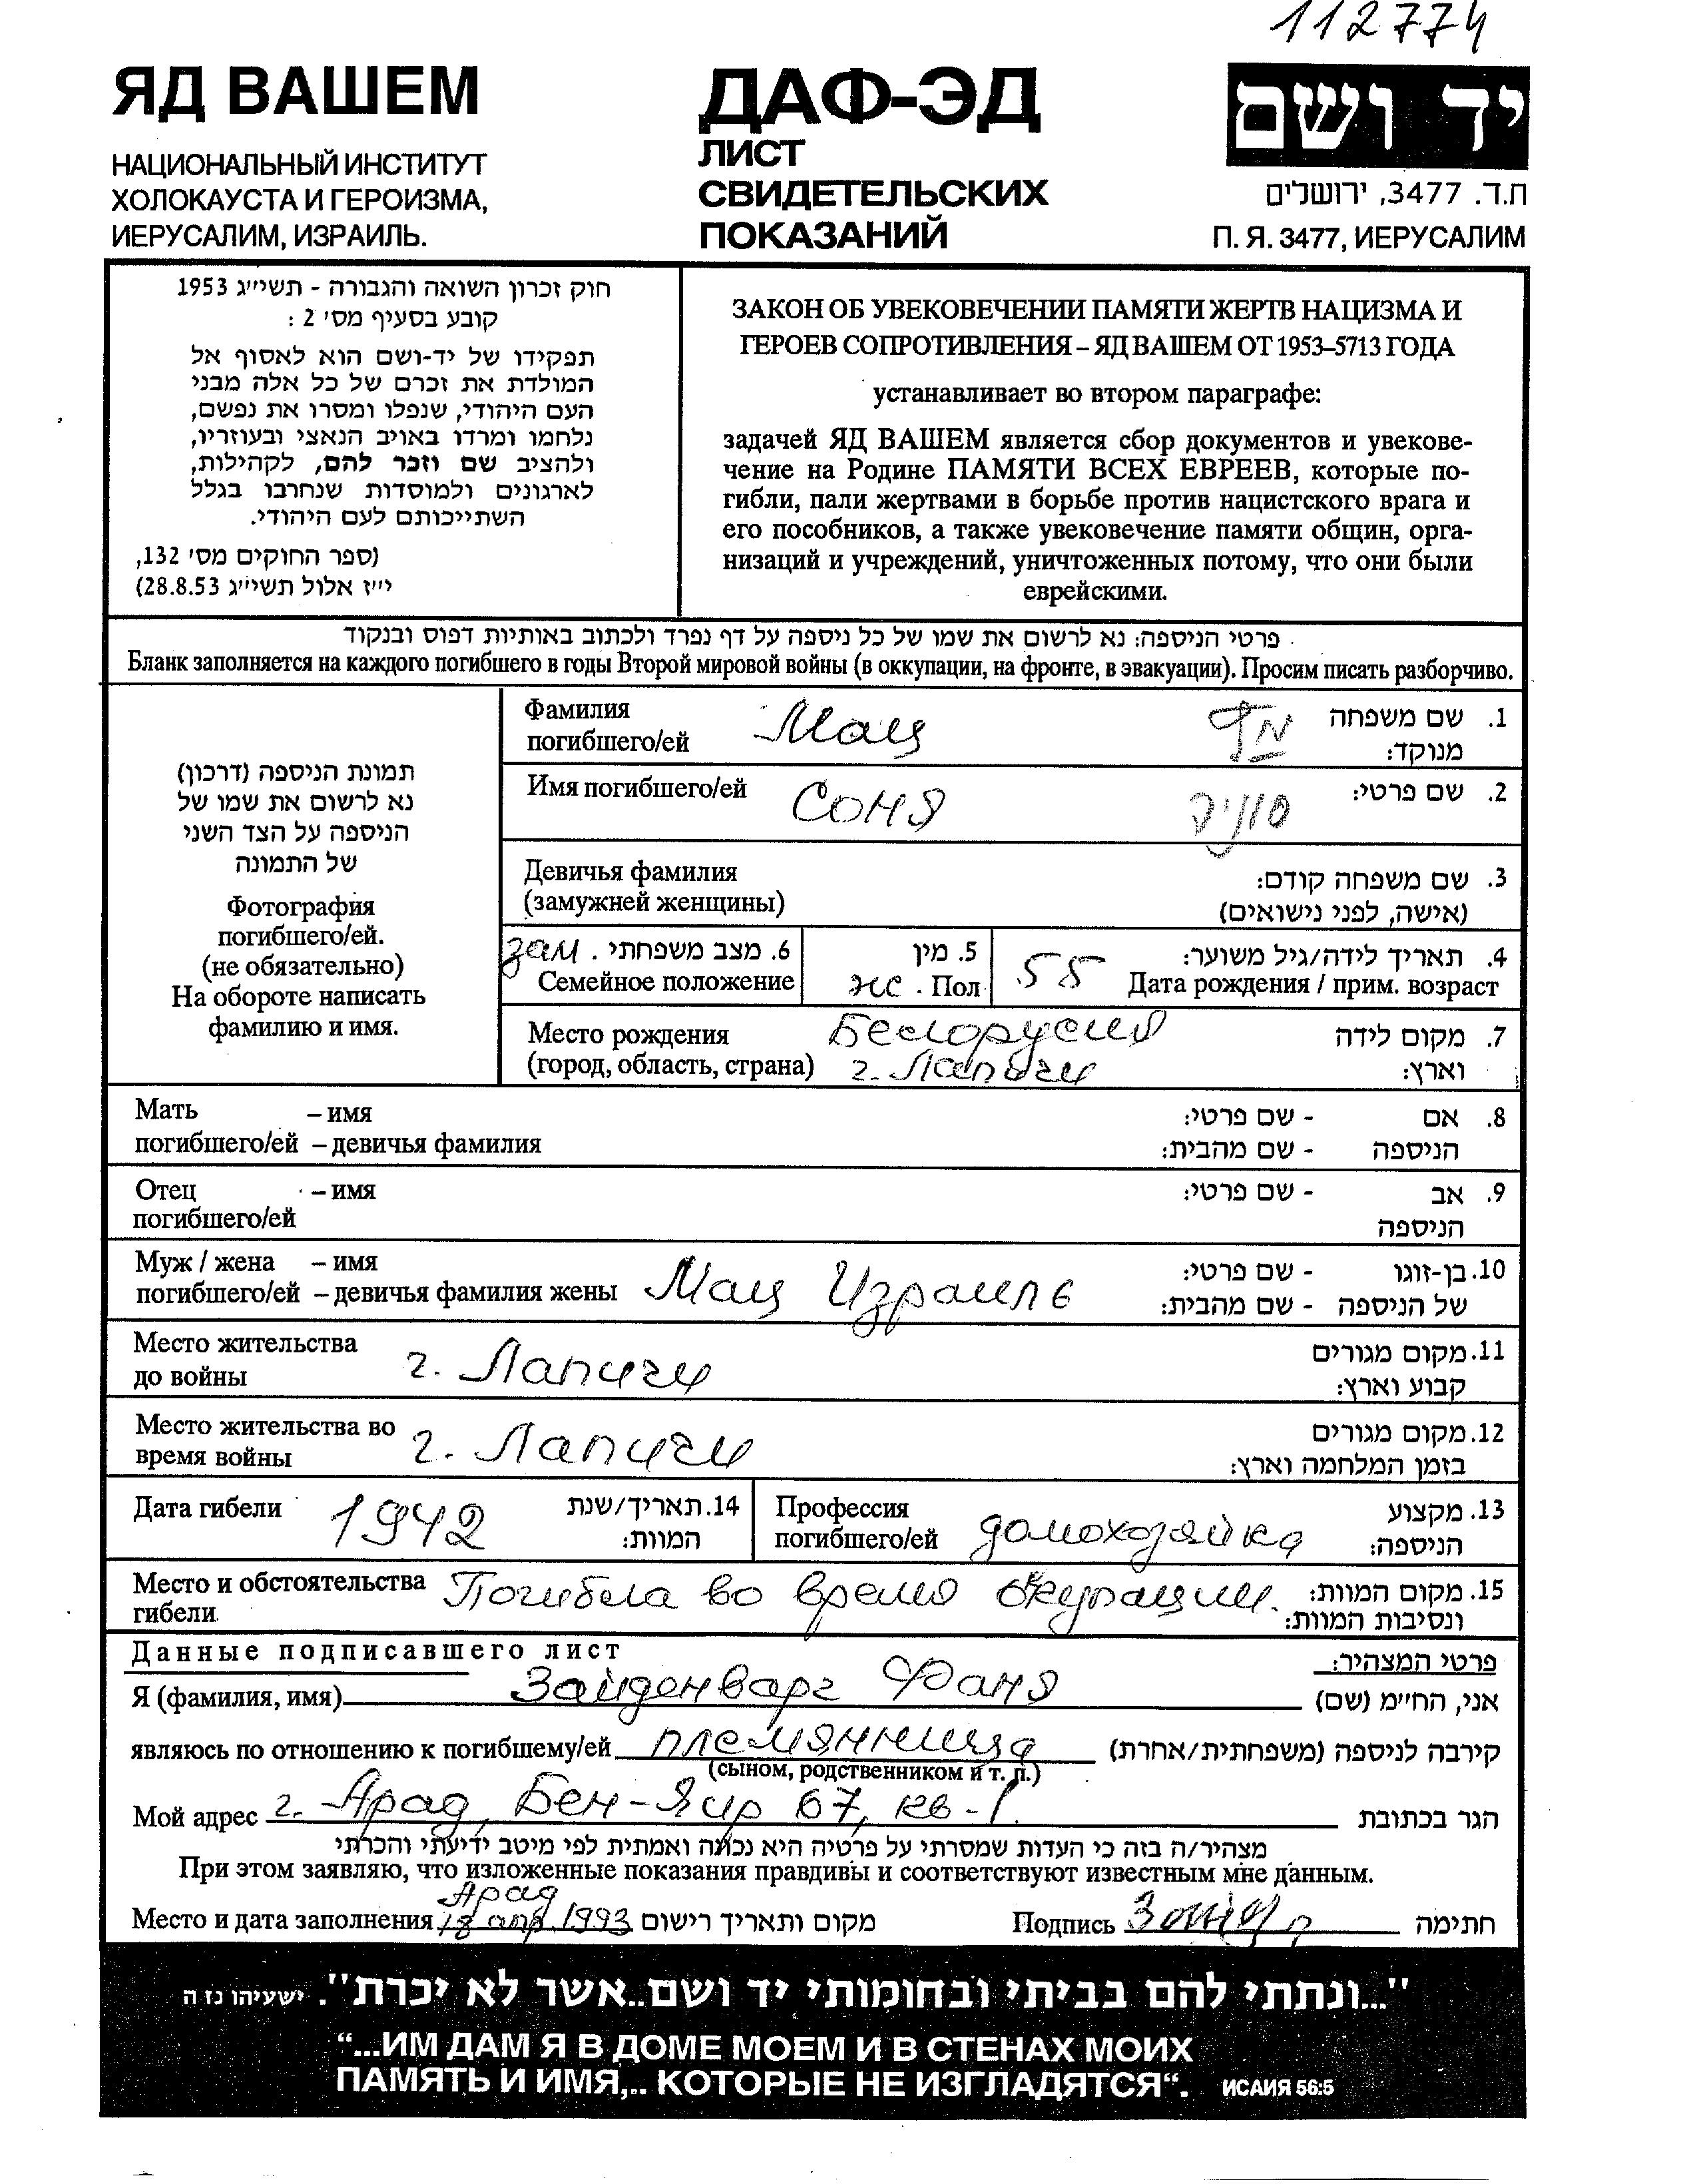 112774
ЯД ВАШЕМ
НАЦИОНАЛЬНЫЙ ИНСТИТУТ
ХОЛОКАУСТА И ГЕРОИЗМА,
ИЕРУСАЛИМ, ИЗРАИЛЬ.
ДАФ-ЭД
ЛИСТ
СВИДЕТЕЛЬСКИХ
ПОКАЗАНИЙ
יד ושם
ת.ד. 3477, ירושלים
П. Я. 3477, ИЕРУСАЛИМ
חוק זכרון השואה והגבורה - תשי״ג 1953
קובע בסעיף מס׳ 2 :
תפקידו של יד-ושם הוא לאסוף אל
המולדת את זכרם של כל אלה מבני
העם היהודי, שנפלו ומסרו את נפשם,
נלחמו ומרדו באויב הנאצי ובעוזריו,
ולהציב שם וזכר להם, לקהילות,
לארגונים ולמוסדות שנחרבו בגלל
השתייכותם לעם היהודי.
(ספר החוקים מס׳ 132,
י״ז אלול תשי״ג 28.8.53)
ЗАКОН ОБ УВЕКОВЕЧЕНИИ ПАМЯТИ ЖЕРТВ НАЦИЗМА И
ГЕРОЕВ СОПРОТИВЛЕНИЯ – ЯД ВАШЕМ ОТ 1953–5713 ГОДА
устанавливает во втором параграфе:
задачей ЯД ВАШЕМ является сбор документов и увекове-
чение на Родине ПАМЯТИ ВСЕХ ЕВРЕЕВ, которые по-
гибли, пали жертвами в борьбе против нацистского врага и
его пособников, а также увековечение памяти общин, орга-
низаций и учреждений, уничтоженных потому, что они были
еврейскими.
פרטי הניספה: נא לרשום את שמו של כל ניספה על דף נפרד ולכתוב באותיות דפוס ובנקוד
Бланк заполняется на каждого погибшего в годы Второй мировой войны (в оккупации, на фронте, в эвакуации). Просим писать разборчиво.
תמונת הניספה (דרכון)
נא לרשום את שמו של
הניספה על הצד השני
של התמונה
Фотография
погибшего/ей.
(не обязательно)
На обороте написать
фамилию и имя.
Фамилия Мац מץ 1. שם משפחה
погибшего/ей מנוקד:
Имя погибшего/ей Соня סוניה 2. שם פרטי:
Девичья фамилия 3. שם משפחה קודם:
(замужней женщины) (אישה, לפני נישואים)
зам. 6. מצב משפחתי 5. מין 55 4. תאריך לידה/גיל משוער:
Семейное положение ж. Пол Дата рождения / прим. возраст
Место рождения Белорусия 7. מקום לידה
(город, область, страна) г. Лапичи וארץ:
Мать – имя 8. אם - שם פרטי:
погибшего/ей – девичья фамилия הניספה - שם מהבית:
Отец – имя 9. אב - שם פרטי:
погибшего/ей הניספה
Муж / жена – имя 10. בן-זוגו - שם פרטי:
погибшего/ей – девичья фамилия жены Мац Израиль של הניספה - שם מהבית:
Место жительства г. Лапичи 11. מקום מגורים
до войны קבוע וארץ:
Место жительства во г. Лапичи 12. מקום מגורים
время войны בזמן המלחמה וארץ:
Дата гибели 1942 14. תאריך/שנת המוות:
Профессия погибшего/ей домохозяйка 13. מקצוע הניספה:
Место и обстоятельства Погибла во время окупации. 15. מקום המוות:
гибели ונסיבות המוות:
Данные подписавшего лист פרטי המצהיר:
Я (фамилия, имя) Зайденварг Фаня אני, הח״מ (שם)
являюсь по отношению к погибшему/ей племянница קירבה לניספה (משפחתית/אחרת)
(сыном, родственником и т. п.)
Мой адрес г. Арад, Бен-Яир 67, кв-1. הגר בכתובת
מצהיר/ה בזה כי העדות שמסרתי על פרטיה היא נכונה ואמתית לפי מיטב ידיעתי והכרתי
При этом заявляю, что изложенные показания правдивы и соответствуют известным мне данным.
Арад
Место и дата заполнения 18 апр. 1993 מקום ותאריך רישום Подпись חתימה
"...ונתתי להם בביתי ובחומותי יד ושם..אשר לא יכרת". ישעיהו נז ה
“...ИМ ДАМ Я В ДОМЕ МОЕМ И В СТЕНАХ МОИХ
ПАМЯТЬ И ИМЯ,.. КОТОРЫЕ НЕ ИЗГЛАДЯТСЯ“. ИСАИЯ 56:5